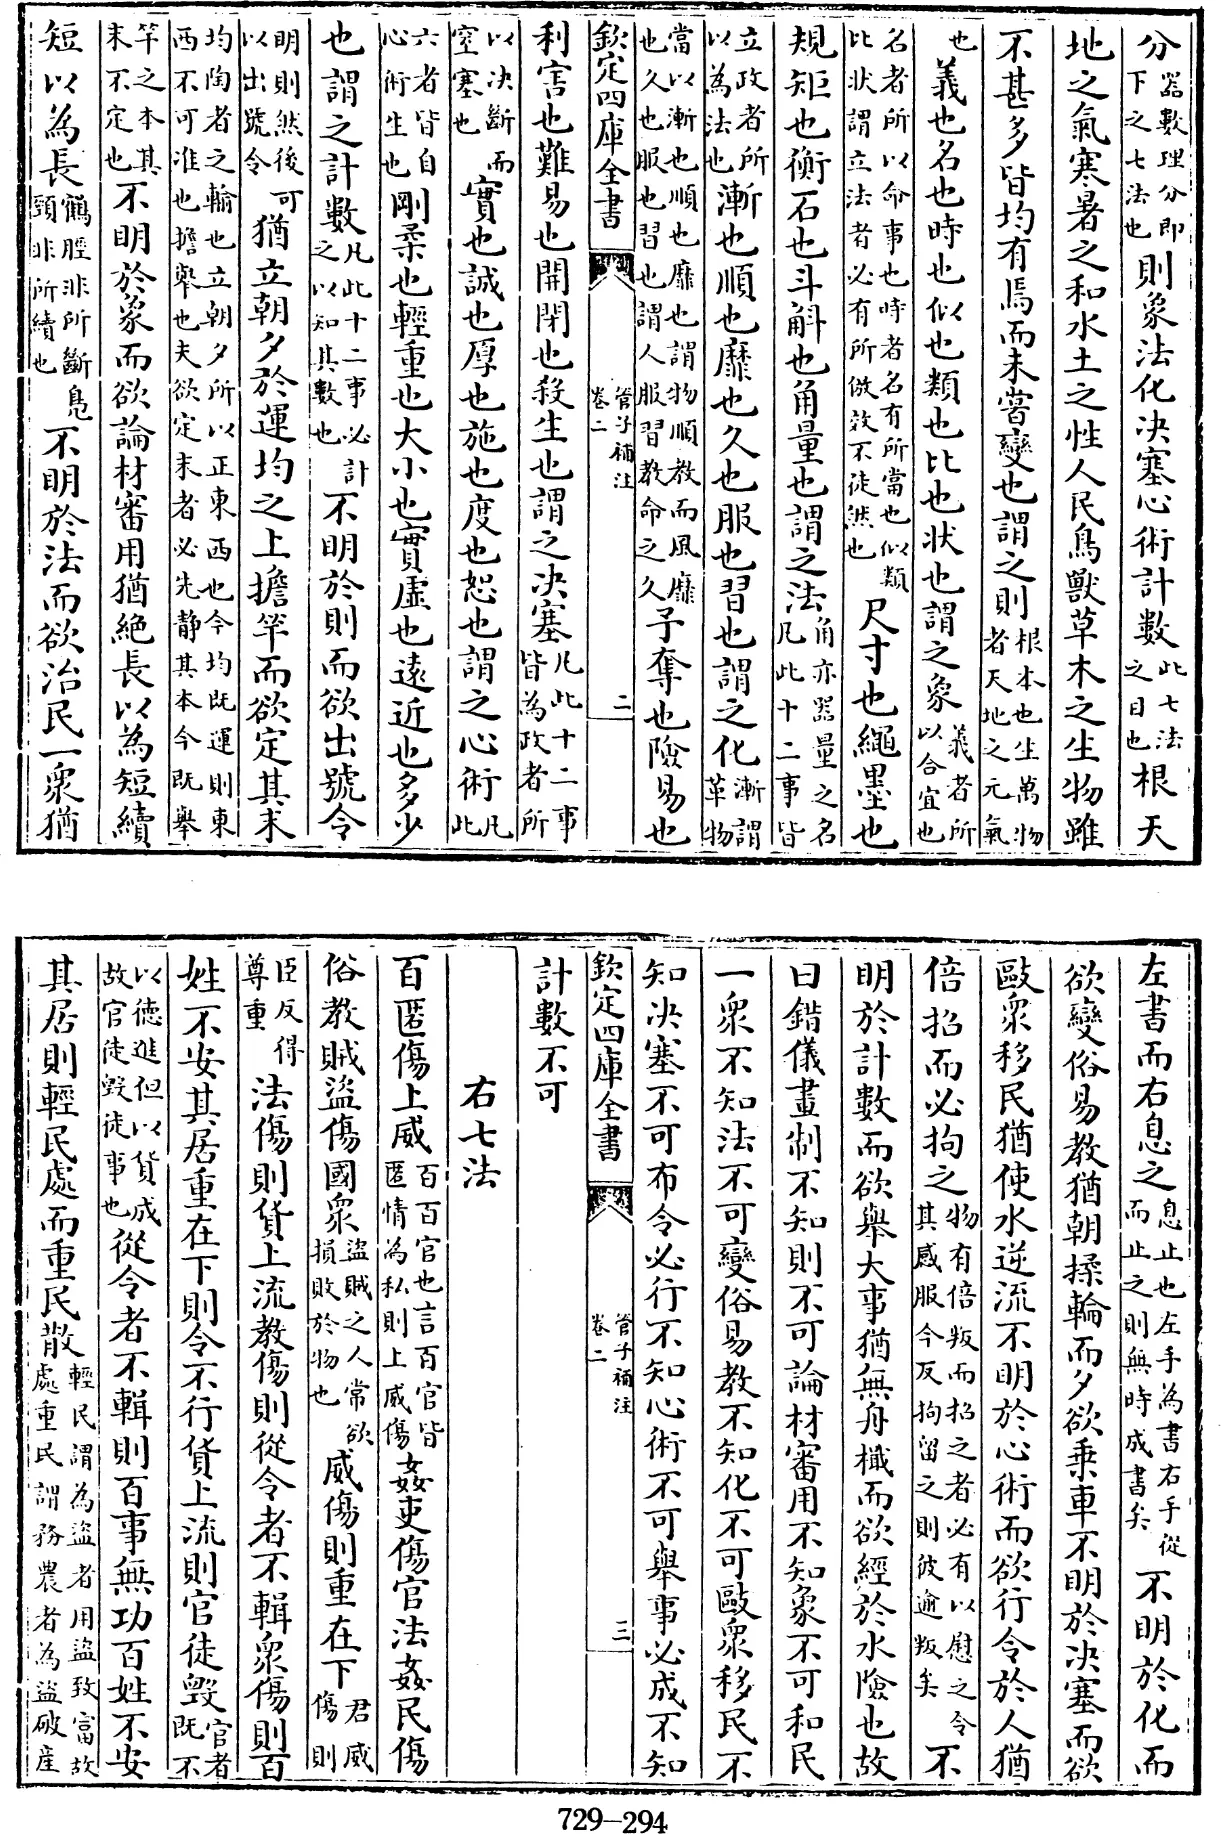 分器數理分即下之七法也則象法化決塞心術計數此七法之目也根天
地之氣寒暑之和水土之性人民鳥獸草木之生物雖
不甚多皆均有焉而未嘗變也謂之則根本也生萬物者天地之元氣
也義也名也時也似也類也比也狀也謂之象義者所以合宜也
名者所以命事也時者名有所當也似類比狀謂立法者必有所倣效不徒然也尺寸也繩墨也
規矩也衡石也斗斛也角量也謂之法角亦器量之名凡此十二事皆
立政者所以為法也漸也順也靡也久也服也習也謂之化漸謂革物
當以漸也順也靡也謂物順教而風靡也久也服也習也謂人服習教命之久予奪也險易也
欽定四庫全書 管子補注 卷二 二
利害也難易也開閉也殺生也謂之決塞凡此十二事皆為政者所
以決斷而窒塞也實也誠也厚也施也度也恕也謂之心術凡此
六者皆自心術生也剛柔也輕重也大小也實虛也遠近也多少
也謂之計數凡此十二事必計之以知其數也不明於則而欲出號令
明則然後可以出號令猶立朝夕於運均之上擔竿而欲定其末
均陶者之輪也立朝夕所以正東西也今均既運則東西不可准也擔舉也夫欲定末者必先静其本今既舉
竿之本其末不定也不明於象而欲論材審用猶絶長以為短續
短以為長鶴脛非所斷鳬頸非所續也不明於法而欲治民一衆猶
左書而右息之息止也左手為書右手從而止之則無時成書矣不明於化而
欲變俗易教猶朝揉輪而夕欲乗車不明於決塞而欲
敺衆移民猶使水逆流不明於心術而欲行令於人猶
倍招而必拘之物有倍叛而招之者必有以慰之令其感服今反拘留之則彼逾叛矣不
明於計數而欲舉大事猶無舟檝而欲經於水險也故
曰錯儀畫制不知則不可論材審用不知象不可和民
一衆不知法不可變俗易教不知化不可敺衆移民不
知決塞不可布令必行不知心術不可舉事必成不知
欽定四庫全書 管子補注 卷二 三
計數不可
右七法
百匿傷上威百百官也言百官皆匿情為私則上威傷姦吏傷官法姦民傷
俗教賊盜傷國衆盜賊之人常欲損敗於物也威傷則重在下君威傷則
臣反得尊重法傷則貨上流教傷則從令者不輯衆傷則百
姓不安其居重在下則令不行貨上流則官徒毀官者既不
以德進但以貨成故官徒毀徒事也從令者不輯則百事無功百姓不安
其居則輕民處而重民散輕民謂為盜者用盜致富故處重民謂務農者為盜破産
729-294